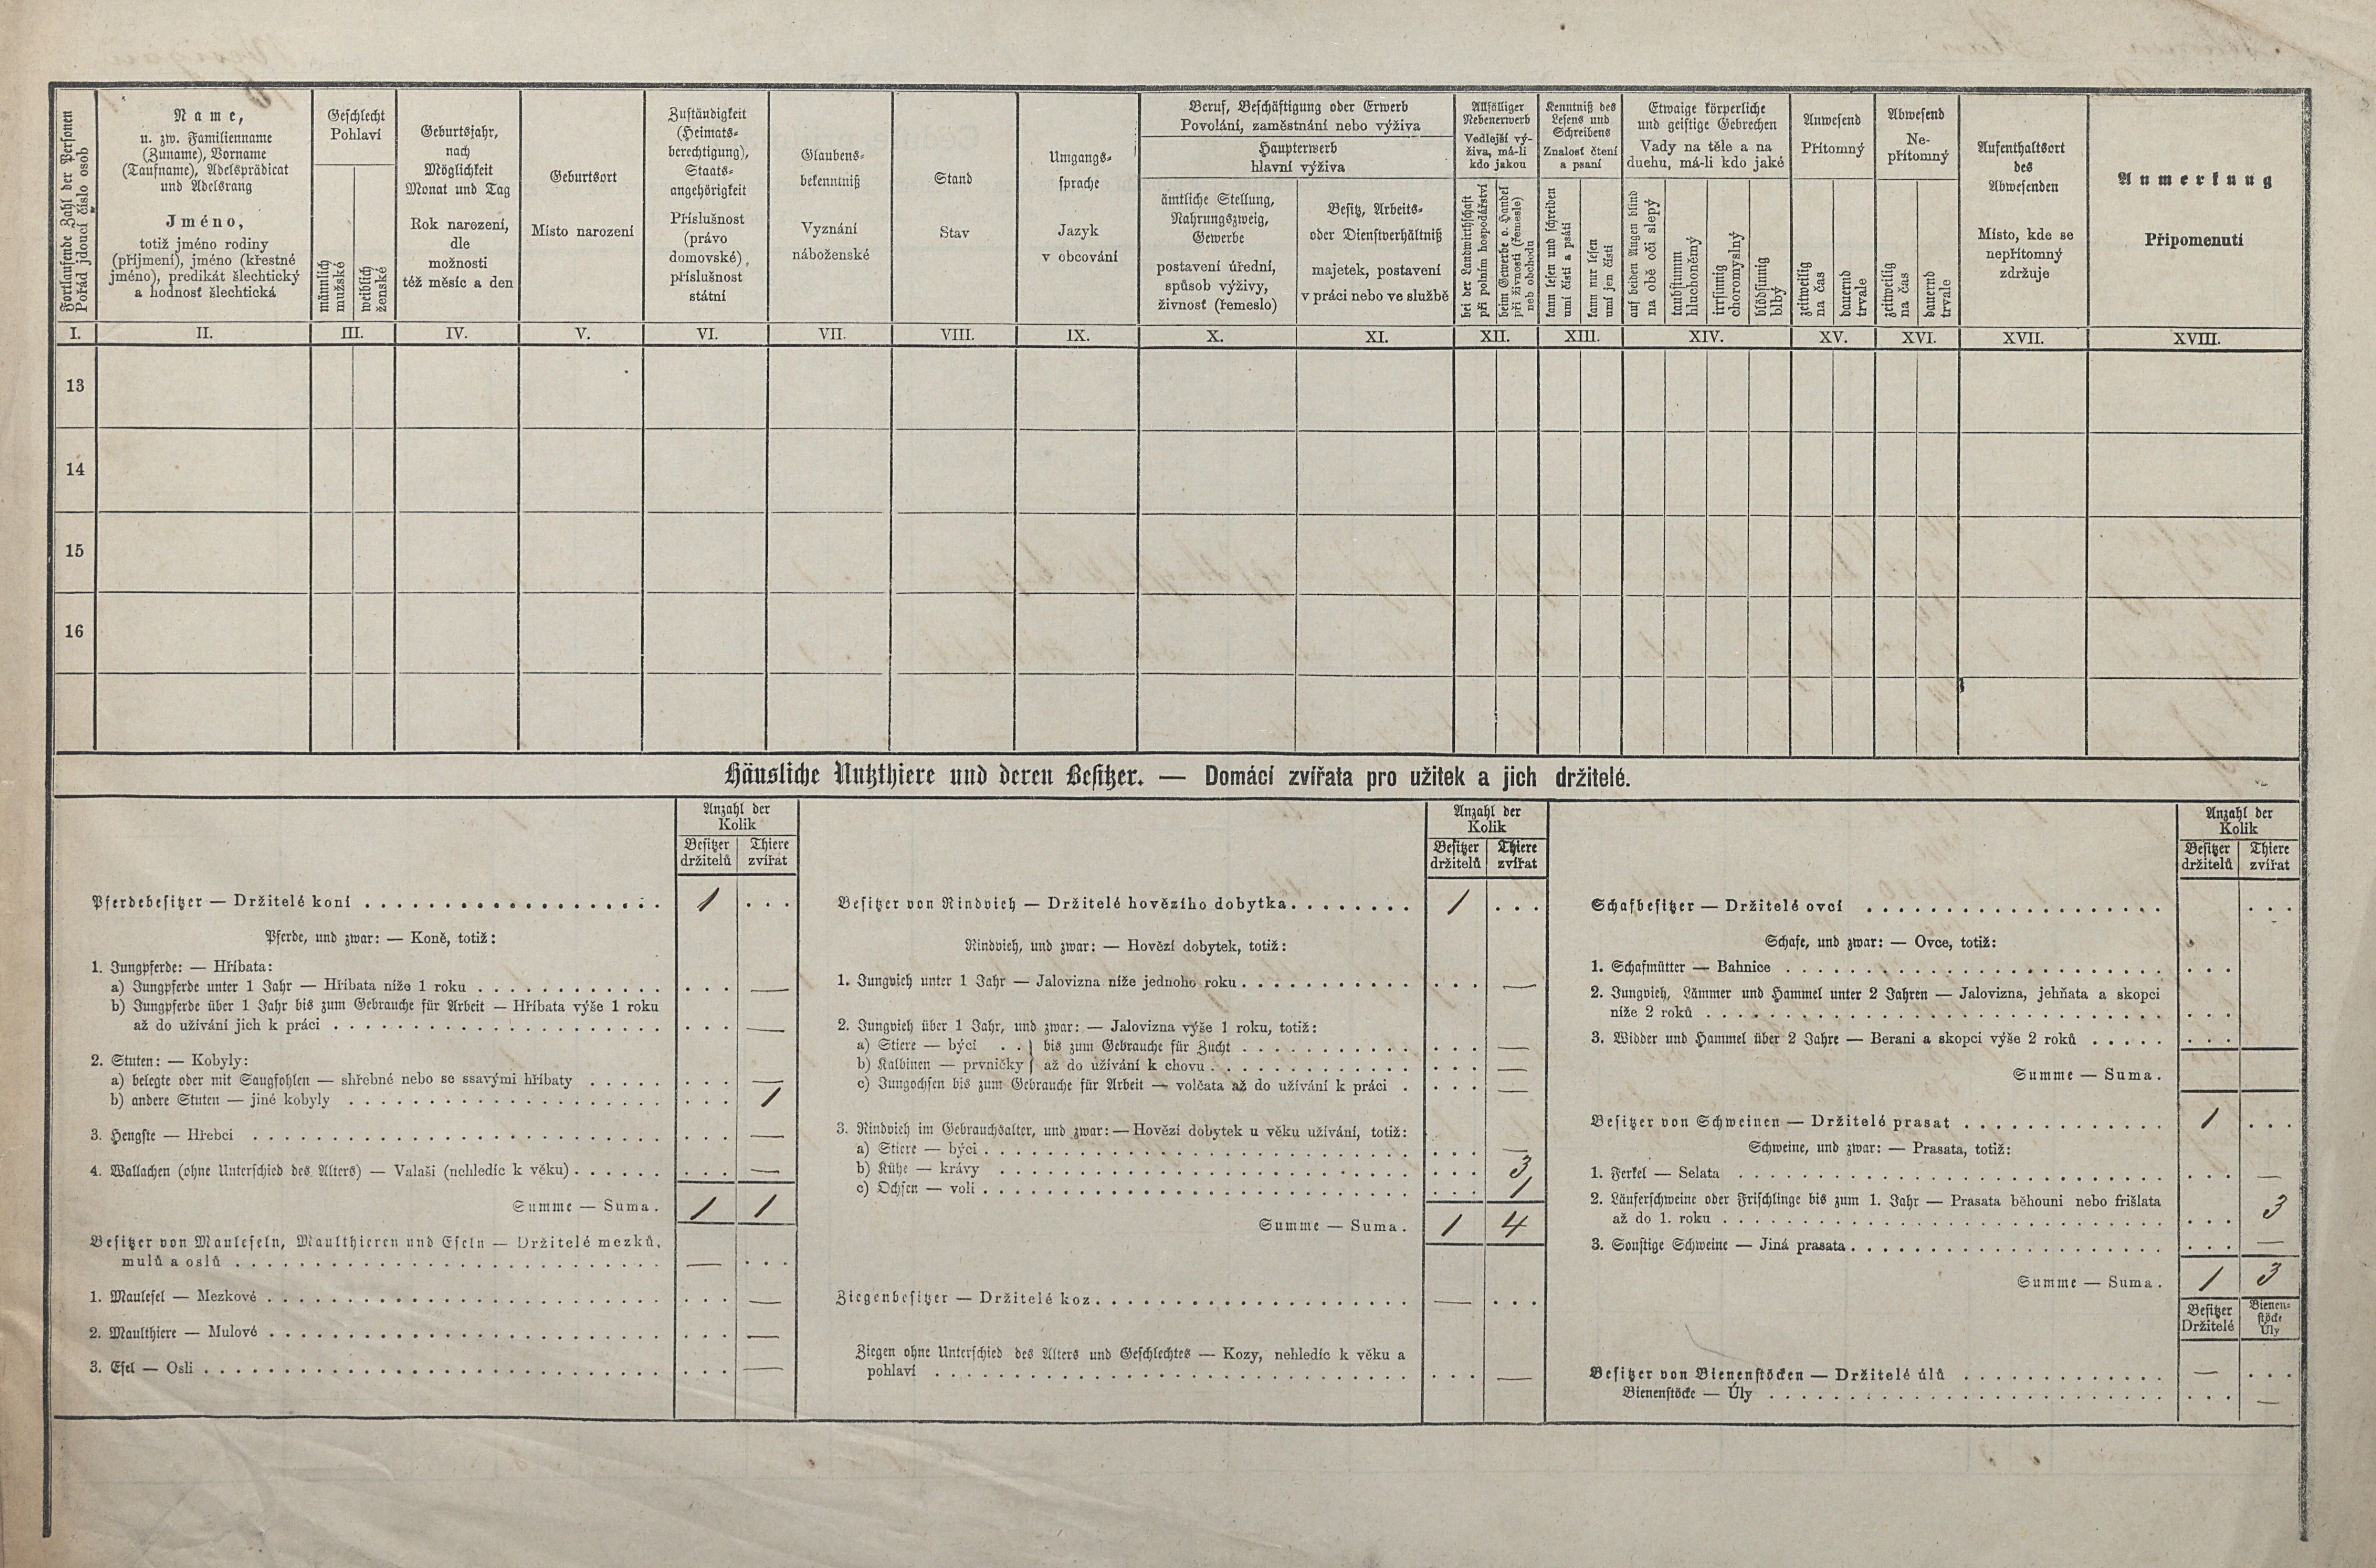 Fortlaufende Zahl der Personen
Pořád jdoucí číslo osob
Name,
u. zw. Familienname
(Zuname), Vorname
(Taufname), Adelsprädicat
und Adelsrang
Jméno,
totiž jméno rodiny
(příjmení), jméno (křestné
jméno), predikát šlechtický
a hodnosť šlechtická
Geschlecht
Pohlaví
männlich
mužské
weiblich
ženské
Geburtsjahr,
nach
Möglichkeit
Monat und Tag
Rok narození,
dle
možnosti
též měsíc a den
Geburtsort
Místo narození
Zuständigkeit
(Heimats-
berechtigung),
Staats-
angehörigkeit
Příslušnost
(právo
domovské),
příslušnost
státní
Glaubens-
bekenntniß
Vyznání
náboženské
Stand
Stav
Umgangs-
sprache
Jazyk
v obcování
Beruf, Beschäftigung oder Erwerb
Povolání, zaměstnání nebo výživa
Haupterwerb
hlavní výživa
ämtliche Stellung,
Nahrungszweig,
Gewerbe
postavení úřední,
spůsob výživy,
živnost (řemeslo)
Besitz, Arbeits-
oder Dienstverhältniß
majetek, postavení
v práci nebo ve službě
Allfälliger
Nebenerwerb
Vedlejší vý-
živa, má-li
kdo jakou
bei der Landwirthschaft
při polním hospodářství
beim Gewerbe o. Handel
při živnosti (řemeslo)
neb obchodu
Kenntniß des
Lesens und
Schreibens
Znalosť čtení
a psaní
kann lesen und schreiben
umí čísti a psáti
kann nur lesen
umí jen čísti
Etwaige körperliche
und geistige Gebrechen
Vady na těle a na
duehu, má-li kdo jaké
auf beiden Augen blind
na obě oči slepý
taubstumm
hluchoněmý
irrsinnig
choromyslný
blödsinnig
blbý
Anwesend
Přítomný
zeitweilig
na čas
dauernd
trvale
Abwesend
Ne-
přítomný
zeitweilig
na čas
dauernd
trvale
Aufenthaltsort
des
Abwesenden
Místo, kde se
nepřítomný
zdržuje
Anmerkung
Připomenutí
I. II. III. IV. V. VI. VII. VIII. IX. X. XI. XII. XIII. XIV. XV. XVI. XVII. XVIII.
13
14
15
16
Häusliche Nutzthiere und deren Besitzer. — Domácí zvířata pro užitek a jich držitelé.
Anzahl der
Kolik
Besitzer Thiere
držitelů zvířat
Pferdebesitzer — Držitelé koní . . . . . 1 . . .
Pferde, und zwar: — Koně, totiž:
1. Jungpferde: — Hříbata:
a) Jungpferde unter 1 Jahr — Hříbata níže 1 roku . . . . . —
b) Jungpferde über 1 Jahr bis zum Gebrauche für Arbeit — Hříbata výše 1 roku
až do užívání jich k práci . . . . . —
2. Stuten: — Kobyly:
a) belegte oder mit Saugfohlen — shřebné nebo se ssavými hříbaty . . . . . —
b) andere Stuten — jiné kobyly . . . . . 1
3. Hengste — Hřebci . . . . . —
4. Wallachen (ohne Unterschied des Alters) — Valaši (nehledíc k věku) . . . . . —
Summe — Suma. 1 1
Besitzer von Mauleseln, Maulthieren und Eseln — Držitelé mezků,
mulů a oslů . . . . . — . . .
1. Maulesel — Mezkové . . . . . —
2. Maulthiere — Mulové . . . . . —
3. Esel — Osli . . . . . —
Anzahl der
Kolik
Besitzer Thiere
držitelů zvířat
Besitzer von Rindvieh — Držitelé hovězího dobytka . . . . . 1 . . .
Rindvieh, und zwar: — Hovězí dobytek, totiž:
1. Jungvieh unter 1 Jahr — Jalovizna níže jednoho roku . . . . . —
2. Jungvieh über 1 Jahr, und zwar: — Jalovizna výše 1 roku, totiž:
a) Stiere — býci . . } bis zum Gebrauche für Zucht . . . . . —
b) Kalbinen — prvničky } až do užívání k chovu . . . . . —
c) Jungochsen bis zum Gebrauche für Arbeit — volčata až do užívání k práci . . . . —
3. Rindvieh im Gebrauchsalter, und zwar: — Hovězí dobytek u věku užívání, totiž:
a) Stiere — býci . . . . . —
b) Kühe — krávy . . . . . 3
c) Ochsen — voli . . . . . 1
Summe — Suma. 1 4
Ziegenbesitzer — Držitelé koz . . . . . — . . .
Ziegen ohne Unterschied des Alters und Geschlechtes — Kozy, nehledíc k věku a
pohlaví . . . . . —
Anzahl der
Kolik
Besitzer Thiere
držitelů zvířat
Schafbesitzer — Držitelé ovcí . . . . .
Schafe, und zwar: — Ovce, totiž:
1. Schafmütter — Bahnice . . . . .
2. Jungvieh, Lämmer und Hammel unter 2 Jahren — Jalovizna, jehňata a skopci
níže 2 roků . . . . .
3. Widder und Hammel über 2 Jahre — Berani a skopci výše 2 roků . . . . .
Summe — Suma.
Besitzer von Schweinen — Držitelé prasat . . . . . 1 . . .
Schweine, und zwar: — Prasata, totiž:
1. Ferkel — Selata . . . . . —
2. Läuferschweine oder Frischlinge bis zum 1. Jahr — Prasata běhouni nebo frišlata
až do 1. roku . . . . . 3
3. Sonstige Schweine — Jiná prasata . . . . . —
Summe — Suma. 1 3
Besitzer Bienen-
Držitelé stöcke
Úly
Besitzer von Bienenstöcken — Držitelé úlů . . . . . — . . .
Bienenstöcke — Úly . . . . . —